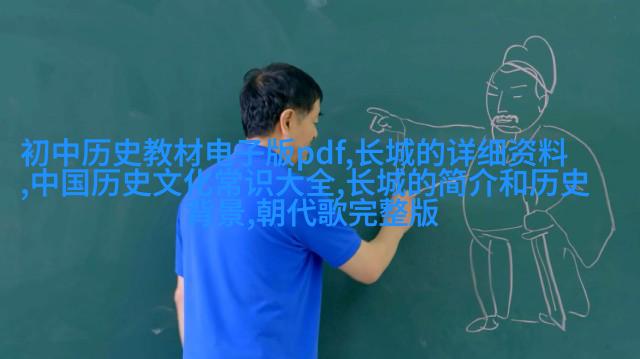 初中历史教材电子版pdf,长城的详细资料
,中国历史文化常识大全,长城的简介和历史
背景,朝代歌完整版